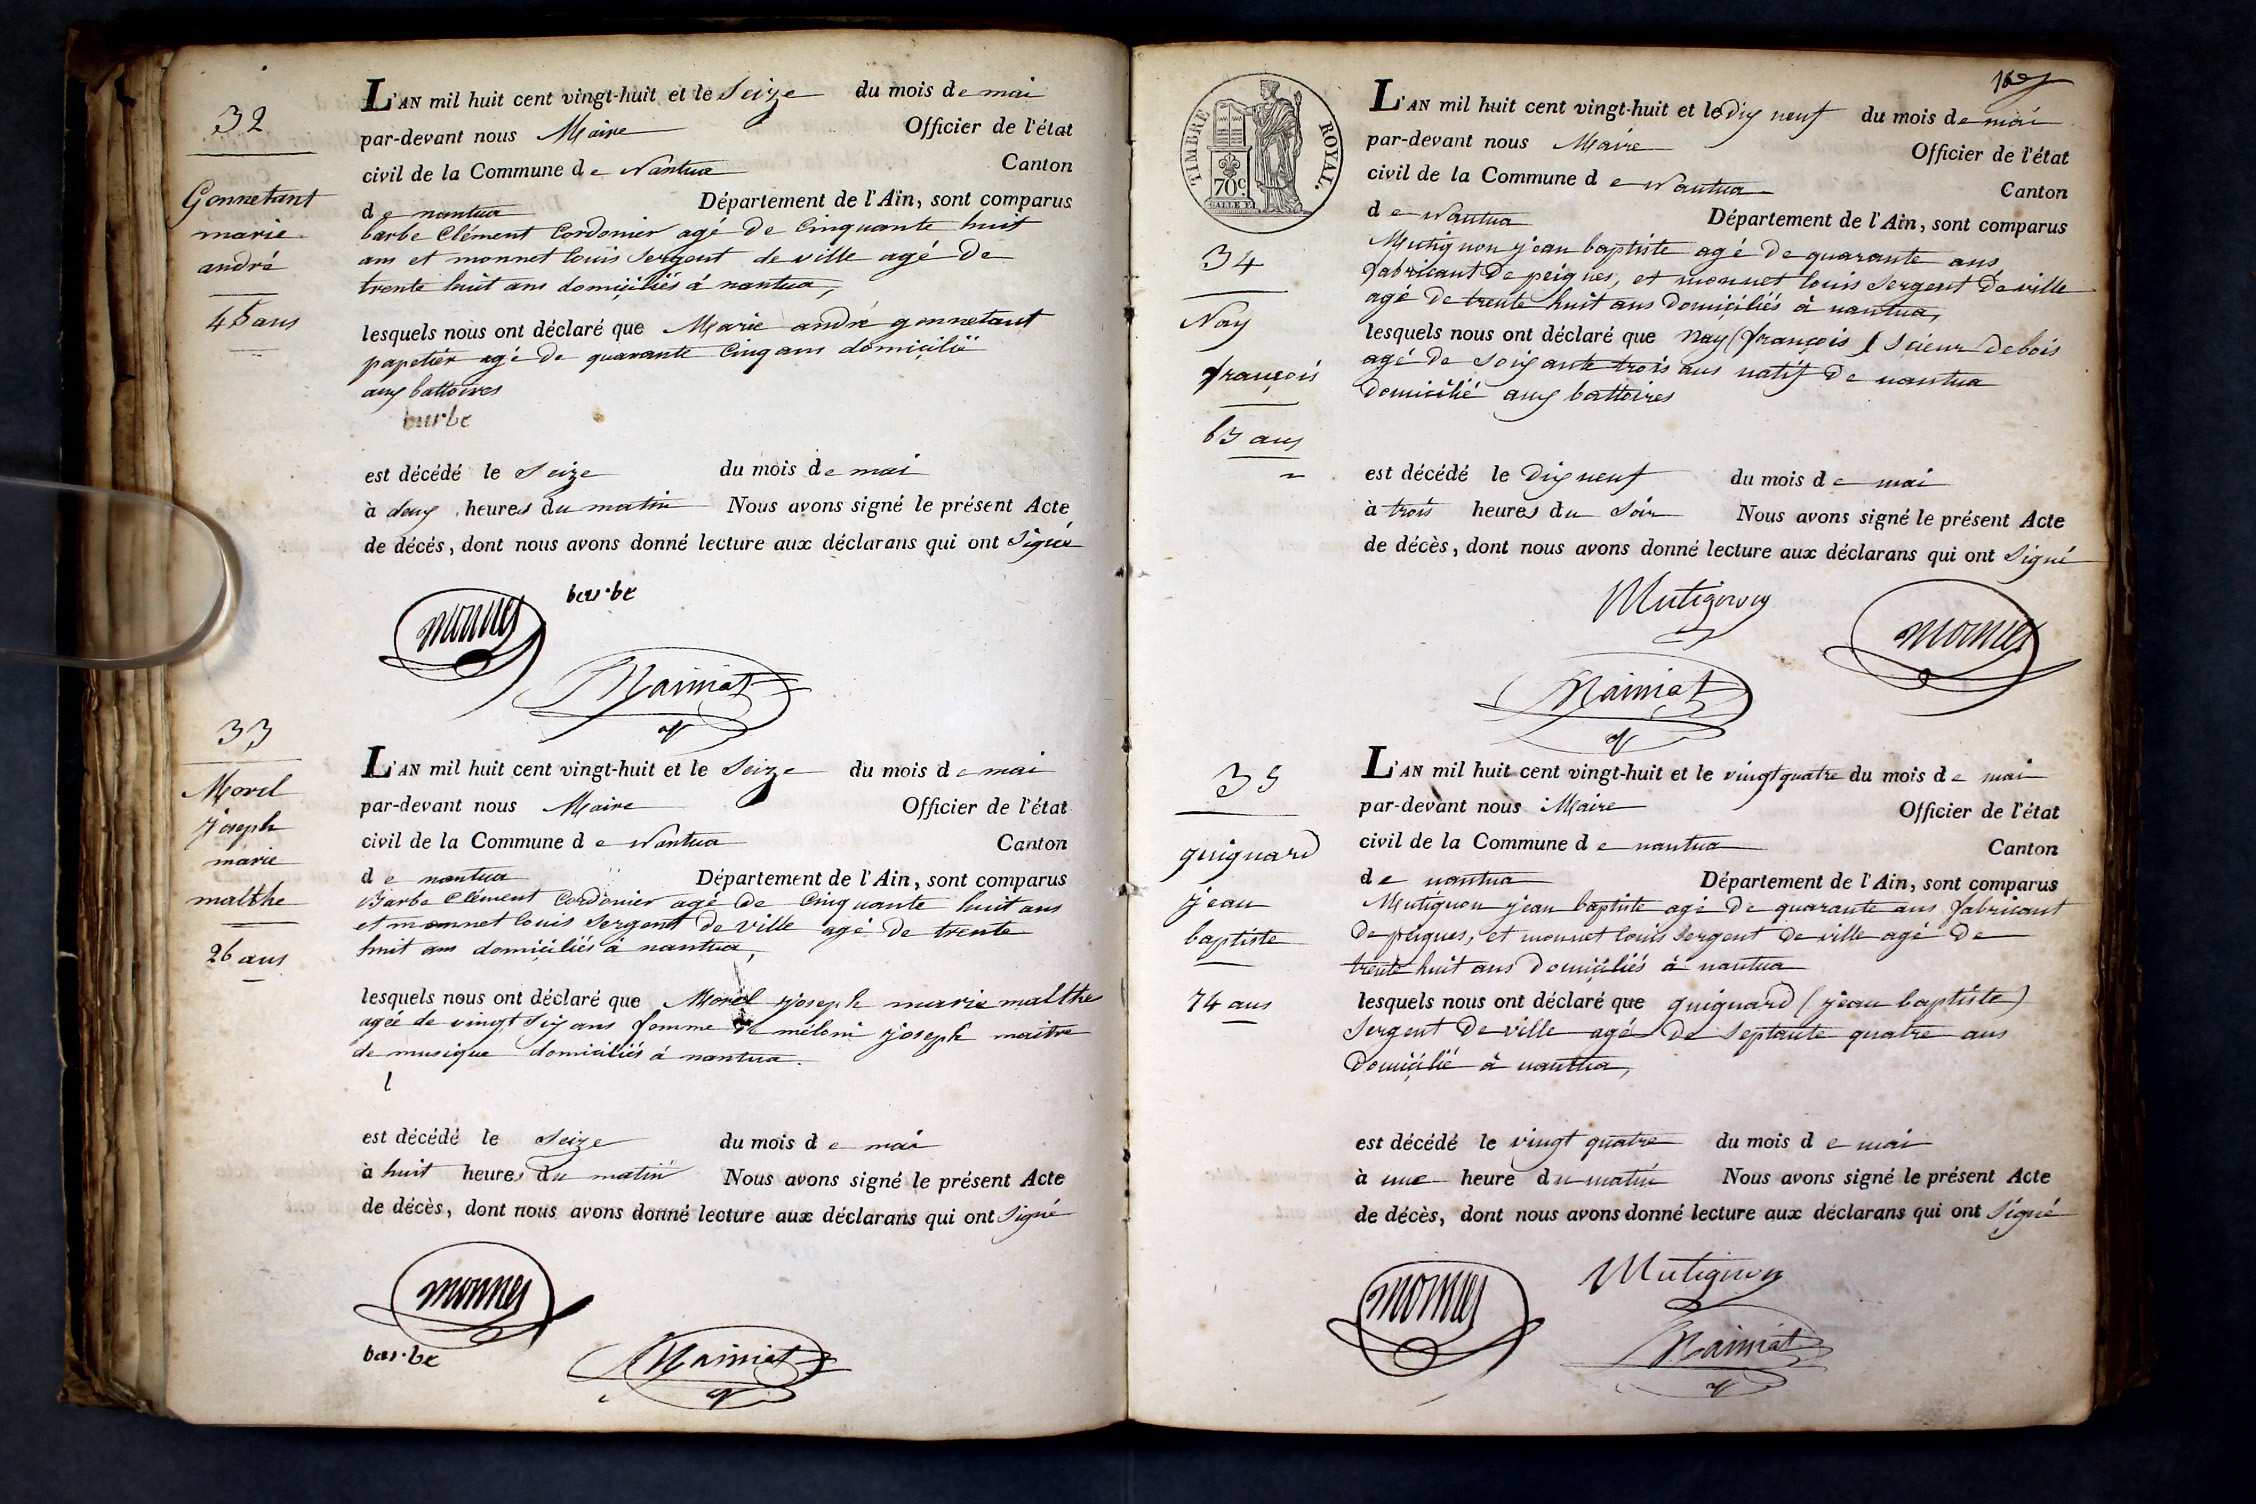 32
Gonnetant
marie
andré
45 ans
L'AN mil huit cent vingt-huit et le Seize du mois de mai
par-devant nous Maire Officier de l'état
civil de la Commune de Nantua Canton
de nantua Département de l'Ain, sont comparus
barbe Clément Cordonier agé de Cinquante huit
ans et monnet louis Sergent de ville agé De
trente huit ans domiciliés à nantua,
lesquels nous ont déclaré que Marie andré gonnetant
papetier agé De quarante Cinq ans domicilié
aux battoires
barbe
est décédé le Seize du mois de mai
à deux heures du matin Nous avons signé le présent Acte
de décés, dont nous avons donné lecture aux déclarans qui ont Signé
monnet
barbe
33
Morel
joseph
marie
malthe
26 ans
L'AN mil huit cent vingt-huit et le Seize du mois de mai
par-devant nous Maire Officier de l'état
civil de la Commune de Nantua Canton
de nantua Département de l'Ain, sont comparus
Barbe Clément Cordonier agé de Cinquante huit ans
et monnet louis Sergent De ville agé De trente
huit ans domiciliés à nantua,
lesquels nous ont déclaré que Morel joseph marie malthe
agée de vingt Six ans femme De méloni joseph maitre
de musique domiciliés à nantua.
est décédé le Seize du mois de mai
à huit heures Du matin Nous avons signé le présent Acte
de décès, dont nous avons donné lecture aux déclarans qui ont Signé
monnet
barbe
TIMBRE ROYAL.
70c.
34
Nay
françois
63 ans
L'AN mil huit cent vingt-huit et le Dix neuf du mois de mai
par-devant nous Maire Officier de l'état
civil de la Commune de Nantua Canton
de Nantua Département de l'Ain, sont comparus
Mutignon jean baptiste agé de quarante ans
fabricant De peignes, et monnet louis Sergent De ville
agé De trente huit ans Domiciliés à nantua,
lesquels nous ont déclaré que Nay (françois) Scieur De bois
agé De Soixante trois ans natif De nantua
Domicilié aux battoires
est décédé le Dix neuf du mois de mai
à trois heures du Soir Nous avons signé le présent Acte
de décès, dont nous avons donné lecture aux déclarans qui ont Signé
Mutignon
monnet
35
guignard
jean
baptiste
74 ans
L'AN mil huit cent vingt-huit et le vingt quatre du mois de mai
par-devant nous Maire Officier de l'état
civil de la Commune de nantua Canton
de nantua Département de l'Ain, sont comparus
Mutignon jean baptiste agé De quarante ans fabricant
De peignes, et monnet louis Sergent De ville agé De
trente huit ans Domiciliés à nantua
lesquels nous ont déclaré que guignard (jean baptiste)
Sergent De ville agé De Septante quatre ans
Domicilié à nantua,
est décédé le vingt quatre du mois de mai
à une heure du matin Nous avons signé le présent Acte
de décès, dont nous avons donné lecture aux déclarans qui ont Signé
monnet
Mutignon